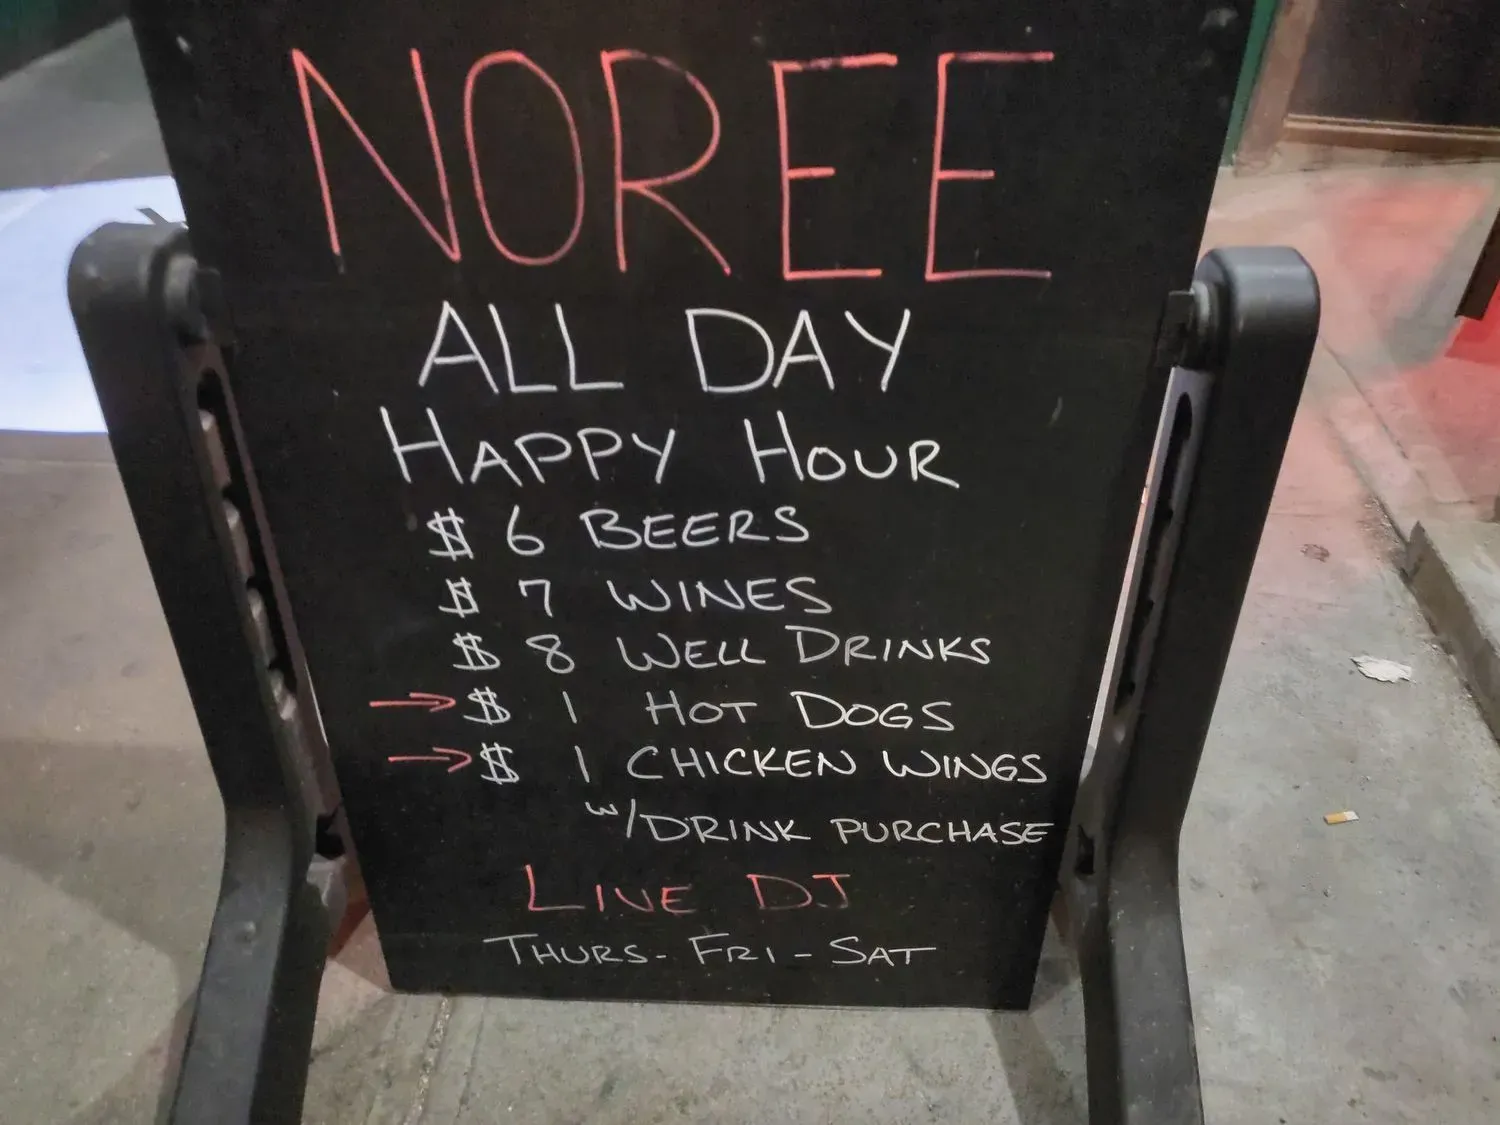 NOREE
ALL DAY
HAPPY HOUR
$ 6 BEERS
$ 7 WINES
$ 8 WELL DRINKS
→ $ 1 HOT DOGS
→ $ 1 CHICKEN WINGS
w/DRINK PURCHASE
LIVE DJ
THURS - FRI - SAT